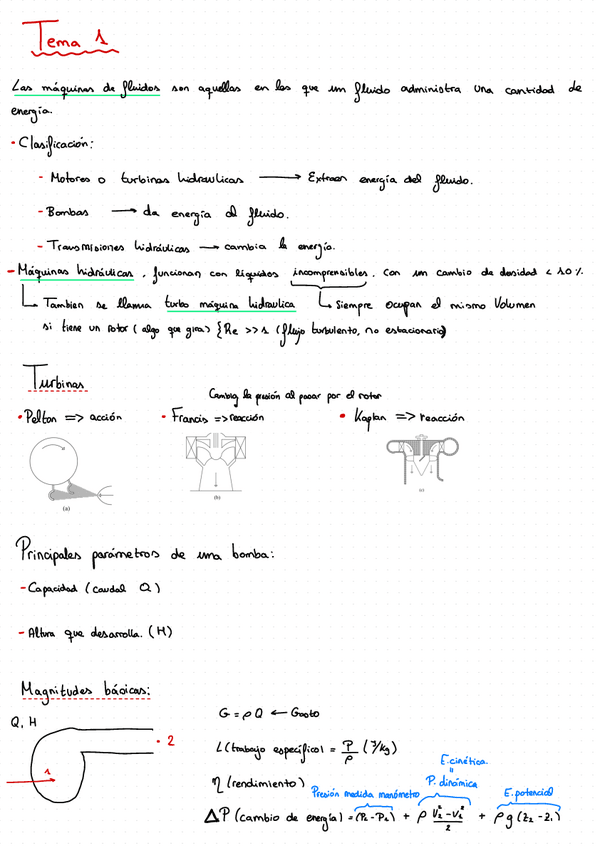 Tema 1
Las máquinas de fluidos son aquellas en las que un fluido administra una cantidad de
energía.
• Clasificación:
- Motores o turbinas hidraulicas → Extraen energía del fluido.
- Bombas → da energía al fluido.
- Transmisiones hidráulicas → cambia la energío.
- Máquinas hidráulicas, funcionan con liquidos incomprensibles. Con un cambio de densidad < 10%
Tambien se llama turbo máquina hidraulica
Siempre ocupan el mismo Volumen
si tiene un rotor (algo que gira) {Re >> 1 (flujo turbulento, no estacionario)
Turbinas
Cambia la presión al pasar por el rotor
• Pelton => acción
• Francis => reacción
• Kaplan => reacción
(a)
(b)
(c)
Principales parámetros de una bomba:
- Capacidad (caudal Q)
- Altura que desarrolla. (H)
Magnitudes básicas:
Q, H
1
• 2
G = ρ Q ← Gasto
L (trabajo específico) = P/ρ (J/kg)
η (rendimiento)
E. cinética.
=
P. dinámica
Presión medida manómetro
E. potencial
ΔP (cambio de energía) = (P₂ - P₁) + ρ (V₂² - V₁²)/2 + ρ g (z₂ - z₁)